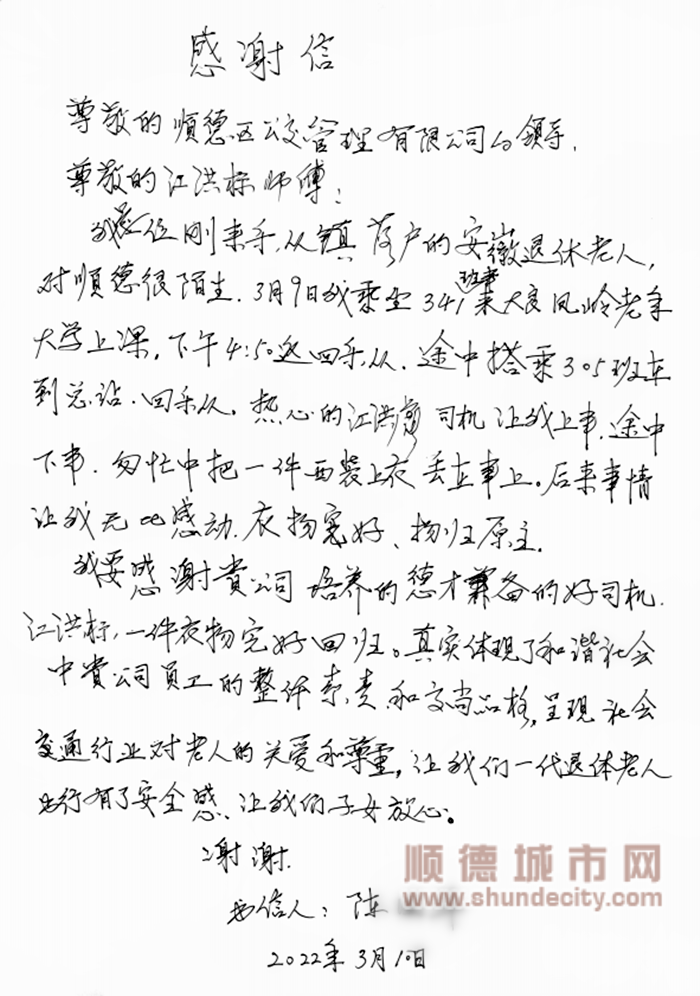 感谢信
尊敬的顺德区公交管理有限公司的领导,
尊敬的江洪标师傅:
我是位刚来乐从镇落户的安徽退休老人,
对顺德很陌生.3月9日我乘坐341班车来大良凤岭老年
大学上课,下午4:50返回乐从.途中搭乘305班车
到总站.回乐从.热心的江洪标司机让我上车.途中
下车.匆忙中把一件西装上衣丢在车上。后来事情
让我无比感动.衣物完好、物归原主.
我要感谢贵公司培养的德才兼备的好司机.
江洪标,一件衣物完好回归。真实体现了和谐社会
中贵公司员工的整体素质和高尚品格,呈现社会
交通行业对老人的关爱和尊重,让我们一代退休老人
出行有了安全感、让我们子女放心。
谢谢.
书信人:陈
2022年3月10日
顺德城市网
www.shundecity.com